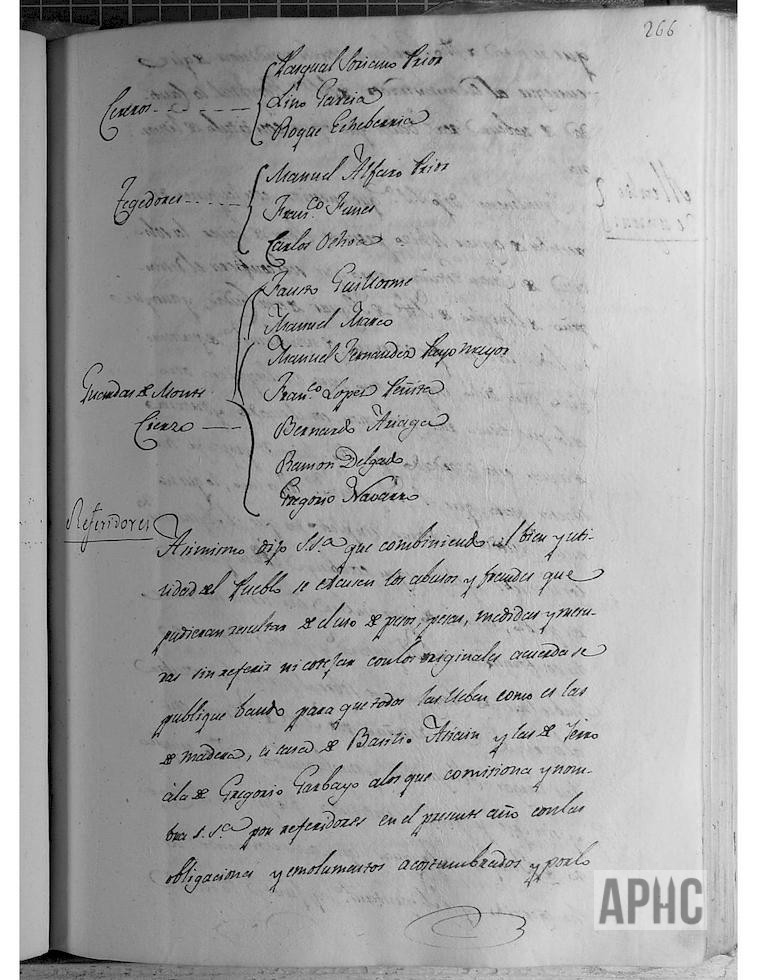 266
Pasqual Soriano Prior
Cereros Lino Garcia
Roque Echeberria
Manuel Alfaro Prior
Tegedores Fran.co Funes
Carlos Ochoa
Fausto Guillorme
Manuel Marco
Manuel Fernandez Rayo mayor
Guardas de Monte Fran.co Lopez
Cierzo Bernardo Ariaga
Ramon Delgado
Gregorio Navarro
Referidores
Asimismo dijo S.Sa que combiniendo al bien y uti-
lidad del Pueblo se escusen los abusos y fraudes que
pudieran resultar de el uso de pesos, pesas, medidas y mesu-
ras sin referir ni cotejar con los originales acuerda se
publique bando para que todos las lleben como es las
de madera, a casa de Basilio Asiain y las de fierro
ala de Gregorio Garbayo alos que comisiona y nom-
bra S.Sa por referidores en el presente año con las
obligaciones y emolumentos acostumbrados y por lo
APHC